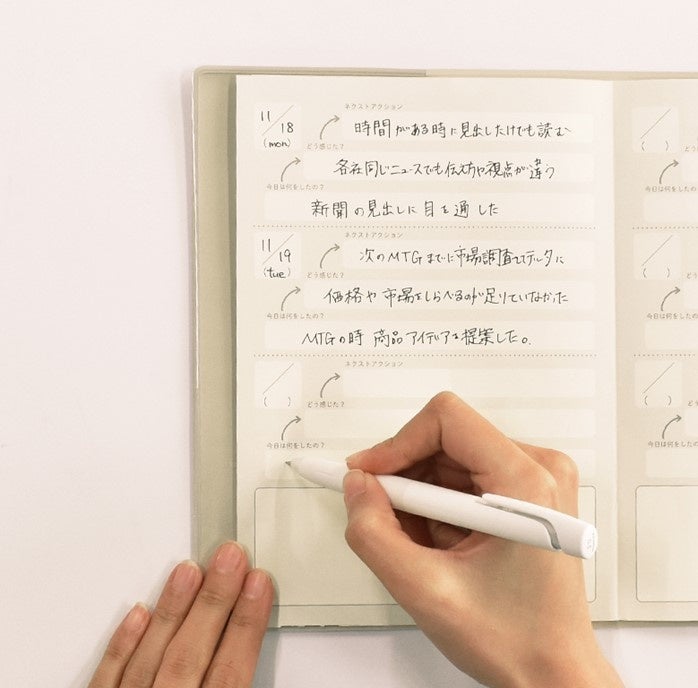 ネクストアクション
11/18
(mon)
時間がある時に見出しだけでも読む
どう感じた？
各社同じニュースでも伝え方や視点が違う
今日は何をしたの？
新聞の見出しに目を通した
ネクストアクション
11/19
(tue)
次のMTGまでに市場調査してデータに
どう感じた？
価格や市場をしらべるのが足りていなかった
今日は何をしたの？
MTGの時 商品アイデアを提案した。
ネクストアクション
( )
どう感じた？
今日は何をしたの？
( )
今日は何を
( )
今日は何を
( )
今日は何を